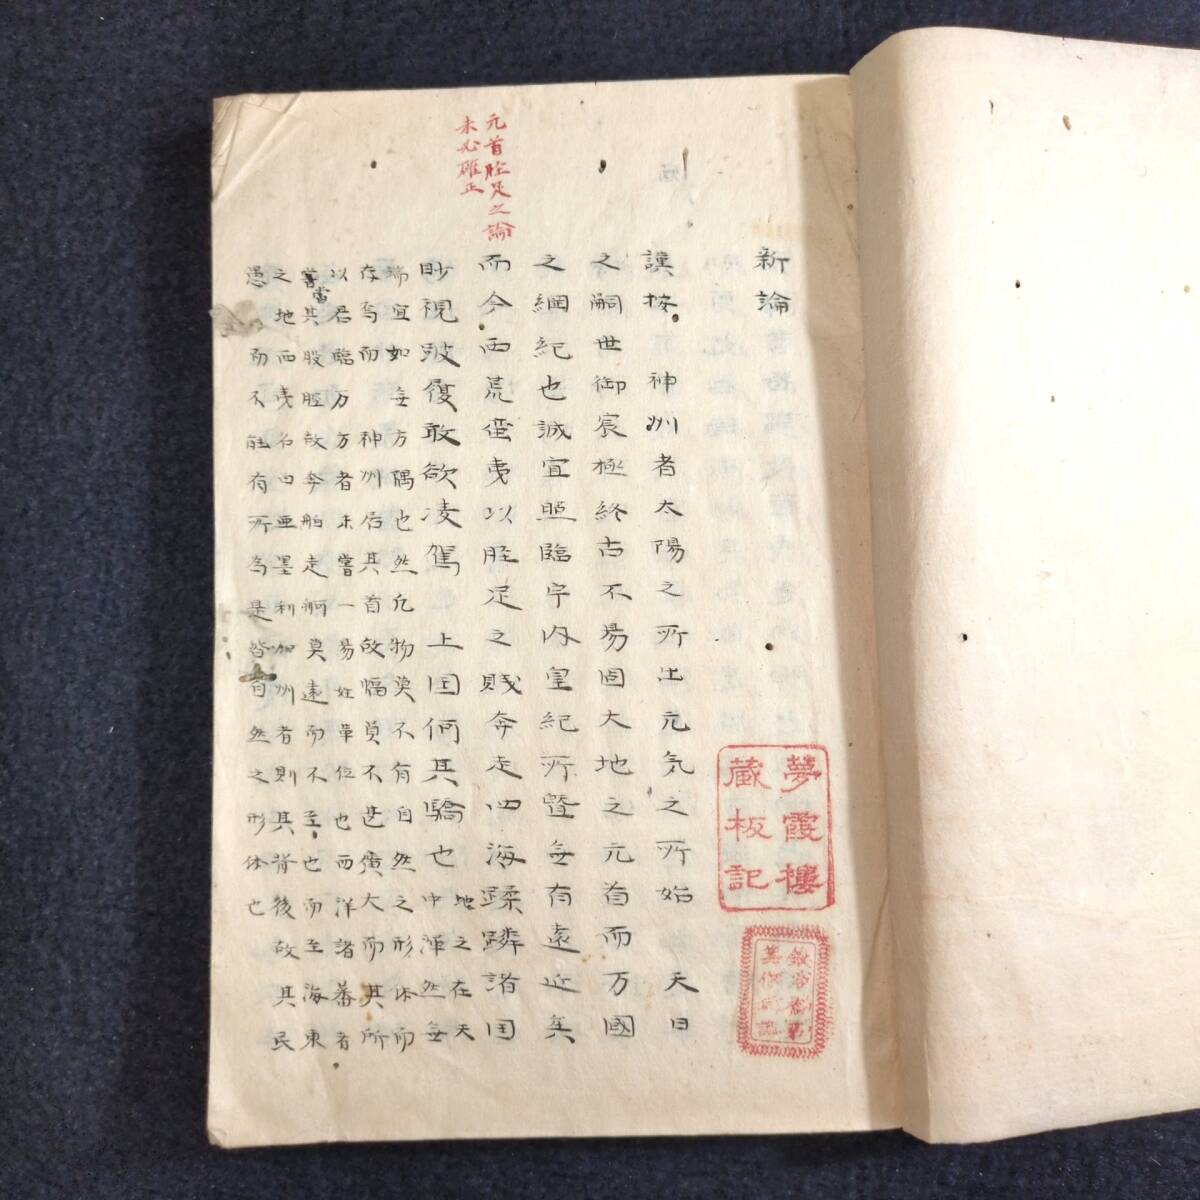 元首脛足之論
未必確正
新論
謹按 神州者太陽之所出元気之所始 天日
之嗣世御宸極終古不易固大地之元首而万國
之綱紀也誠宜照臨宇内皇紀所曁無有遠近矣
而今西荒蛮夷以脛足之賎奔走四海蹂躙諸国
眇視跛履敢欲凌駕 上国何其驕也
地之在天
中渾然無
端宜如無方隅也然凡物莫不有自然之形体而
存焉而 神州居其首故幅員不甚廣大而其所
以君臨万方者未嘗一易姓革位也而洋諸蕃者
當其股脛故奔舶走舸莫遠而不至也而至海東
之地西夷名曰亜墨利加洲者則其背後故其民
愚而不能有所為是皆自然之形体也
夢霞樓
蔵板記